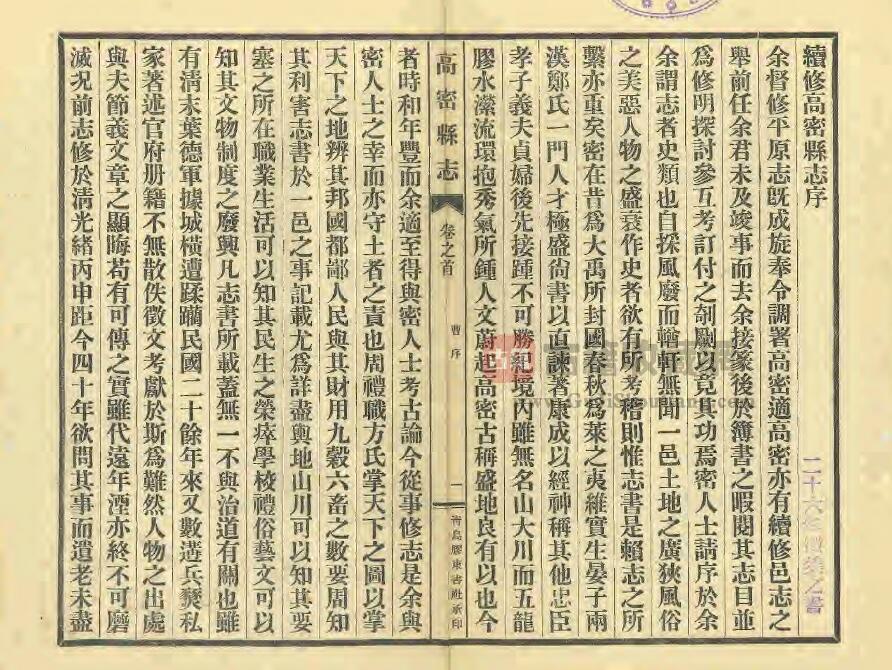 續修高密縣志序
余督修平原志旣成旋奉令調署高密適高密亦有續修邑志之
舉前任余君未及竣事而去余接篆後於簿書之暇閱其志目並
爲修明探討參互考訂付之剞劂以竟其功焉密人士請序於余
余謂志者史類也自採風廢而輶軒無聞一邑土地之廣狹風俗
之美惡人物之盛衰作史者欲有所考稽則惟志書是賴志之所
繫亦重矣密在昔爲大禹所封國春秋爲萊之夷維實生晏子兩
漢鄭氏一門人才極盛尙書以直諫著康成以經神稱其他忠臣
孝子義夫貞婦後先接踵不可勝紀境內雖無名山大川而五龍
膠水瀠流環抱秀氣所鍾人文蔚起高密古稱盛地良有以也今
高密縣志
卷之首
曹序
一
靑島膠東書社承印
者時和年豐而余適至得與密人士考古論今從事修志是余與
密人士之幸而亦守土者之責也周禮職方氏掌天下之圖以掌
天下之地辨其邦國都鄙人民與其財用九穀六畜之數要周知
其利害志書於一邑之事記載尤爲詳盡輿地山川可以知其要
塞之所在職業生活可以知其民生之榮瘁學校禮俗藝文可以
知其文物制度之廢興凡志書所載蓋無一不與治道有關也雖
有淸末葉德軍據城橫遭蹂躪民國二十餘年來又數遘兵燹私
家著述官府册籍不無散佚徵文考獻於斯爲難然人物之出處
與夫節義文章之顯晦苟有可傳之實雖代遠年湮亦終不可磨
滅况前志修於淸光緒丙申距今四十年欲問其事而遺老未盡
www.GujiShouCang.com